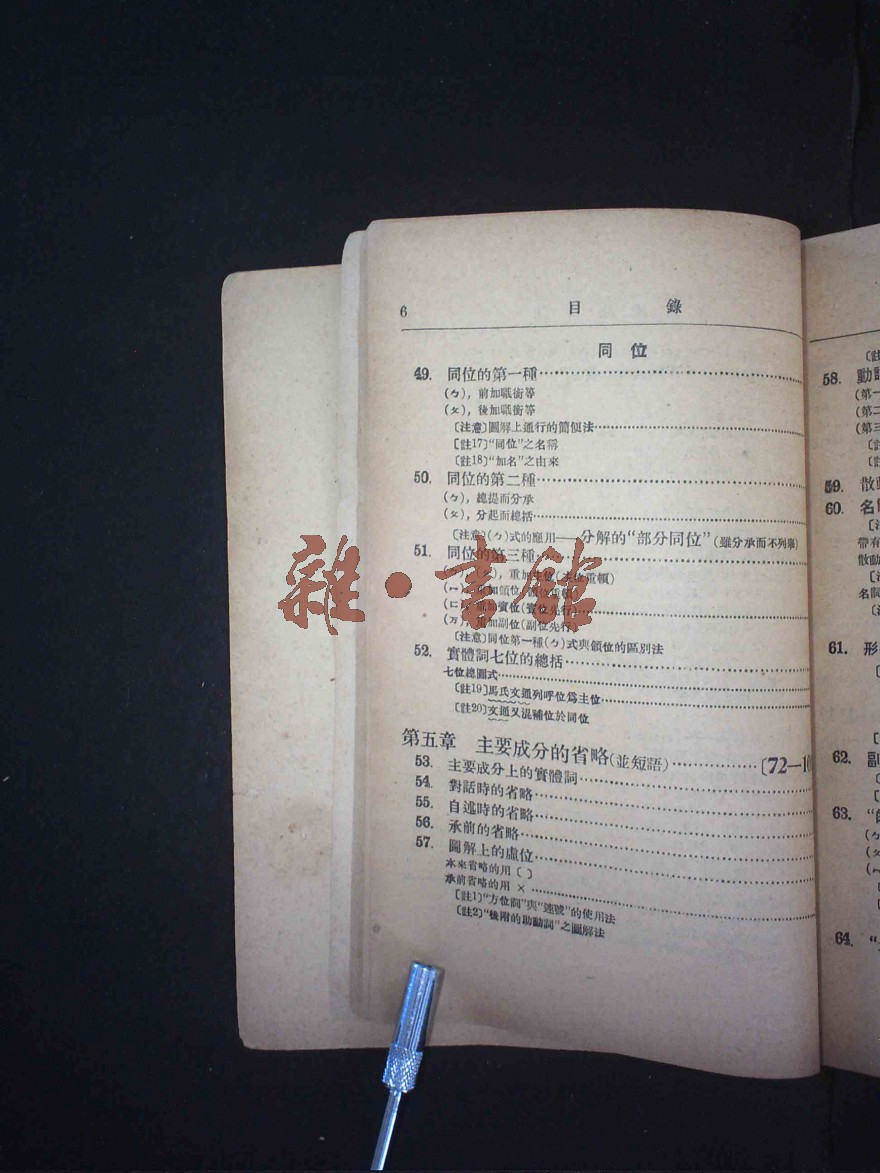 6 目 錄
同 位
49. 同位的第一種
(ㄅ), 前加職銜等
(ㄆ), 後加職銜等
〔注意〕圖解上通行的簡便法
〔註17〕“同位”之名稱
〔註18〕“加名”之由來
50. 同位的第二種
(ㄅ), 總提而分承
(ㄆ), 分起而總括
〔注意〕(ㄅ)式的應用——分解的“部分同位”(雖分承而不列舉)
51. 同位的第三種
重加主位(主位重頓)
重加領位
重加賓位(賓位先行)
(ㄪ), 重加副位(副位先行)
〔注意〕同位第一種(ㄅ)式與領位的區別法
52. 實體詞七位的總括
七位總圖式
〔註19〕馬氏文通列呼位爲主位
〔註20〕文通又混補位於同位
第五章 主要成分的省略(並短語) 〔72—10
53. 主要成分上的實體詞
54. 對話時的省略
55. 自述時的省略
56. 承前的省略
57. 圖解上的虛位
本來省略的用〔 〕
承前省略的用 ×
〔註1〕“方位詞”與“逗號”的使用法
〔註2〕“後附的助動詞”之圖解法
58. 動
(第一
(第二
(第三
59. 散
60. 名
帶有
散動
名詞
61. 形
62. 副
63.
64.
雜·書館